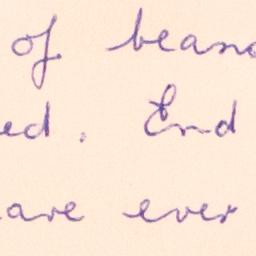 of beans
ed. End
ave ever